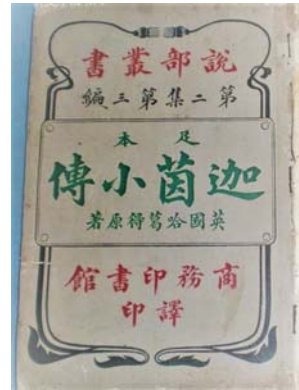 說部叢書
第二集第三編
足本
迦茵小傳
英國哈葛得原著
商務印書館
譯印